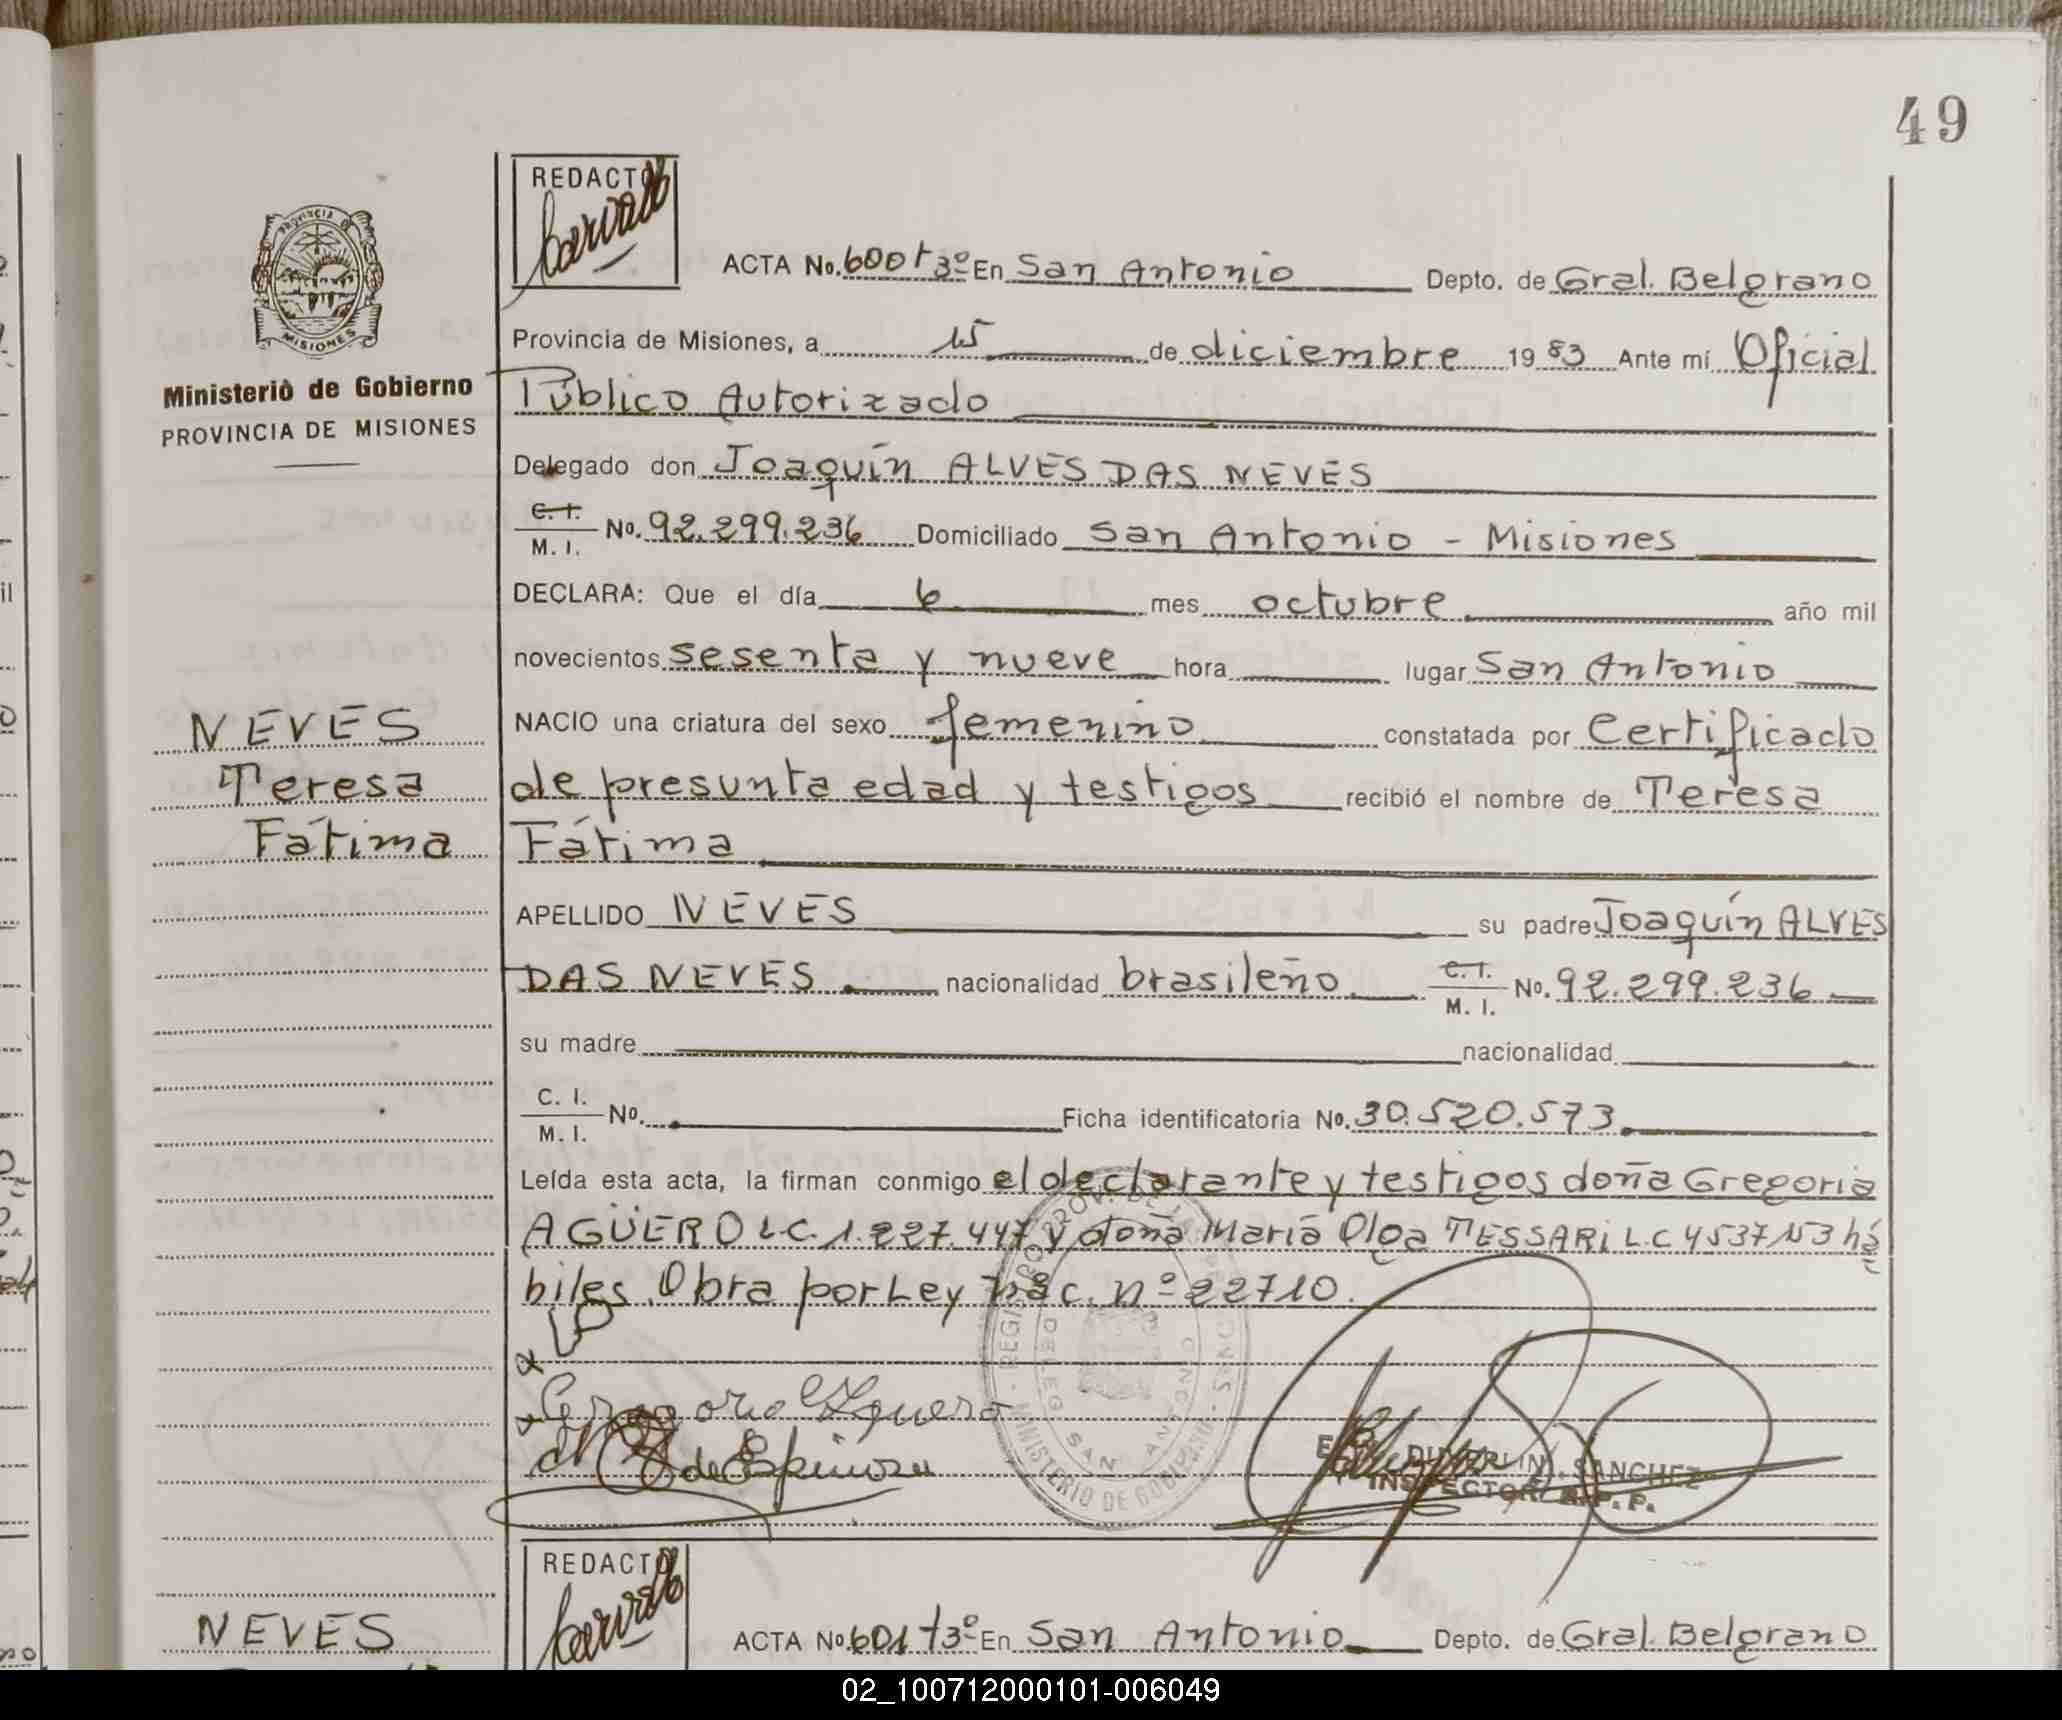 49
REDACTO
PROVINCIA DE
MISIONES
Ministerio de Gobierno
PROVINCIA DE MISIONES
ACTA No. 600 t 3º En San Antonio Depto. de Gral. Belgrano
Provincia de Misiones, a 15 de diciembre 1983 Ante mí Oficial
Público Autorizado
Delegado don Joaquín ALVES DAS NEVES
C. I. / M. I. No. 92.299.236 Domiciliado San Antonio - Misiones
DECLARA: Que el día 6 mes octubre año mil
novecientos sesenta y nueve hora lugar San Antonio
NACIO una criatura del sexo femenino constatada por Certificado
de presunta edad y testigos recibió el nombre de Teresa
Fátima
NEVES
Teresa
Fátima
APELLIDO NEVES su padre Joaquín ALVES
DAS NEVES. nacionalidad brasileño C. I. / M. I. No. 92.299.236
su madre nacionalidad
C. I. / M. I. No. Ficha identificatoria No. 30.520.573
Leída esta acta, la firman conmigo el declarante y testigos doña Gregoria
AGÜERO L.C. 1.227.447 y doña María Olga TESSARI L.C 4537153 há
biles. Obra por Ley Nac. nº 22710.
Gregoria Aguero
de Espinosa
DELEG. SAN ANTONIO
MINISTERIO DE GOBIERNO
SANCHEZ
INSPECTOR R. P. P.
REDACTO
NEVES
ACTA No. 601 t 3º En San Antonio Depto. de Gral. Belgrano
02_100712000101-006049